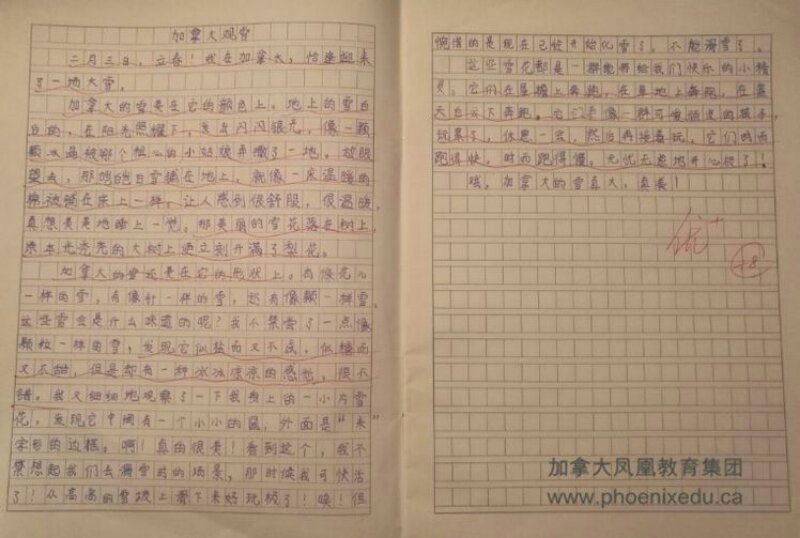 加拿大观雪
二月三日，立春！我在加拿大，恰逢迎来
了一场大雪。
加拿大的雪美在它的颜色上。地上的雪白
白的，在阳光照耀下，发出闪闪银光，像一颗
颗水晶被哪个粗心的小姑娘弄撒了一地。放眼
望去，那皑皑白雪铺在地上，就像一床温暖的
棉被铺在床上一样，让人感到很舒服，很温暖，
真想美美地睡上一觉。那美丽的雪花落在树上，
原本光秃秃的大树上便立刻开满了梨花。
加拿大的雪还美在它的形状上。有像花儿
一样的雪，有像针一样的雪，还有像颗一样雪。
这些雪会是什么味道的呢？我不禁尝了一点像
颗粒一样的雪，发现它似盐而又不咸，似糖而
又不甜，但是却有一种冰冰凉凉的感觉，很不
错。我又细细地观察了一下我身上的一小片雪
花，发现它中间有一个小小的圆，外面是“米”
字形的边框。啊！真的很美！看到这个，我不
禁想起我们去滑雪时的场景，那时候我可快活
了！从高高的雪坡上滑下来好玩极了！唉！但
惋惜的是现在已经开始化雪了，不能滑雪了。
这些雪花都是一群能带给我们快乐的小精
灵。它们在屋檐上奔跑，在草地上奔跑，在蓝
天白云下奔跑。它们像一群可爱顽皮的孩子，
玩累了，休息一会，然后再接着玩，它们时而
跑得快，时而跑得慢，无忧无虑地开心极了！
哦，加拿大的雪真大，真美！
优+
+8
加拿大凤凰教育集团
www.phoenixedu.ca